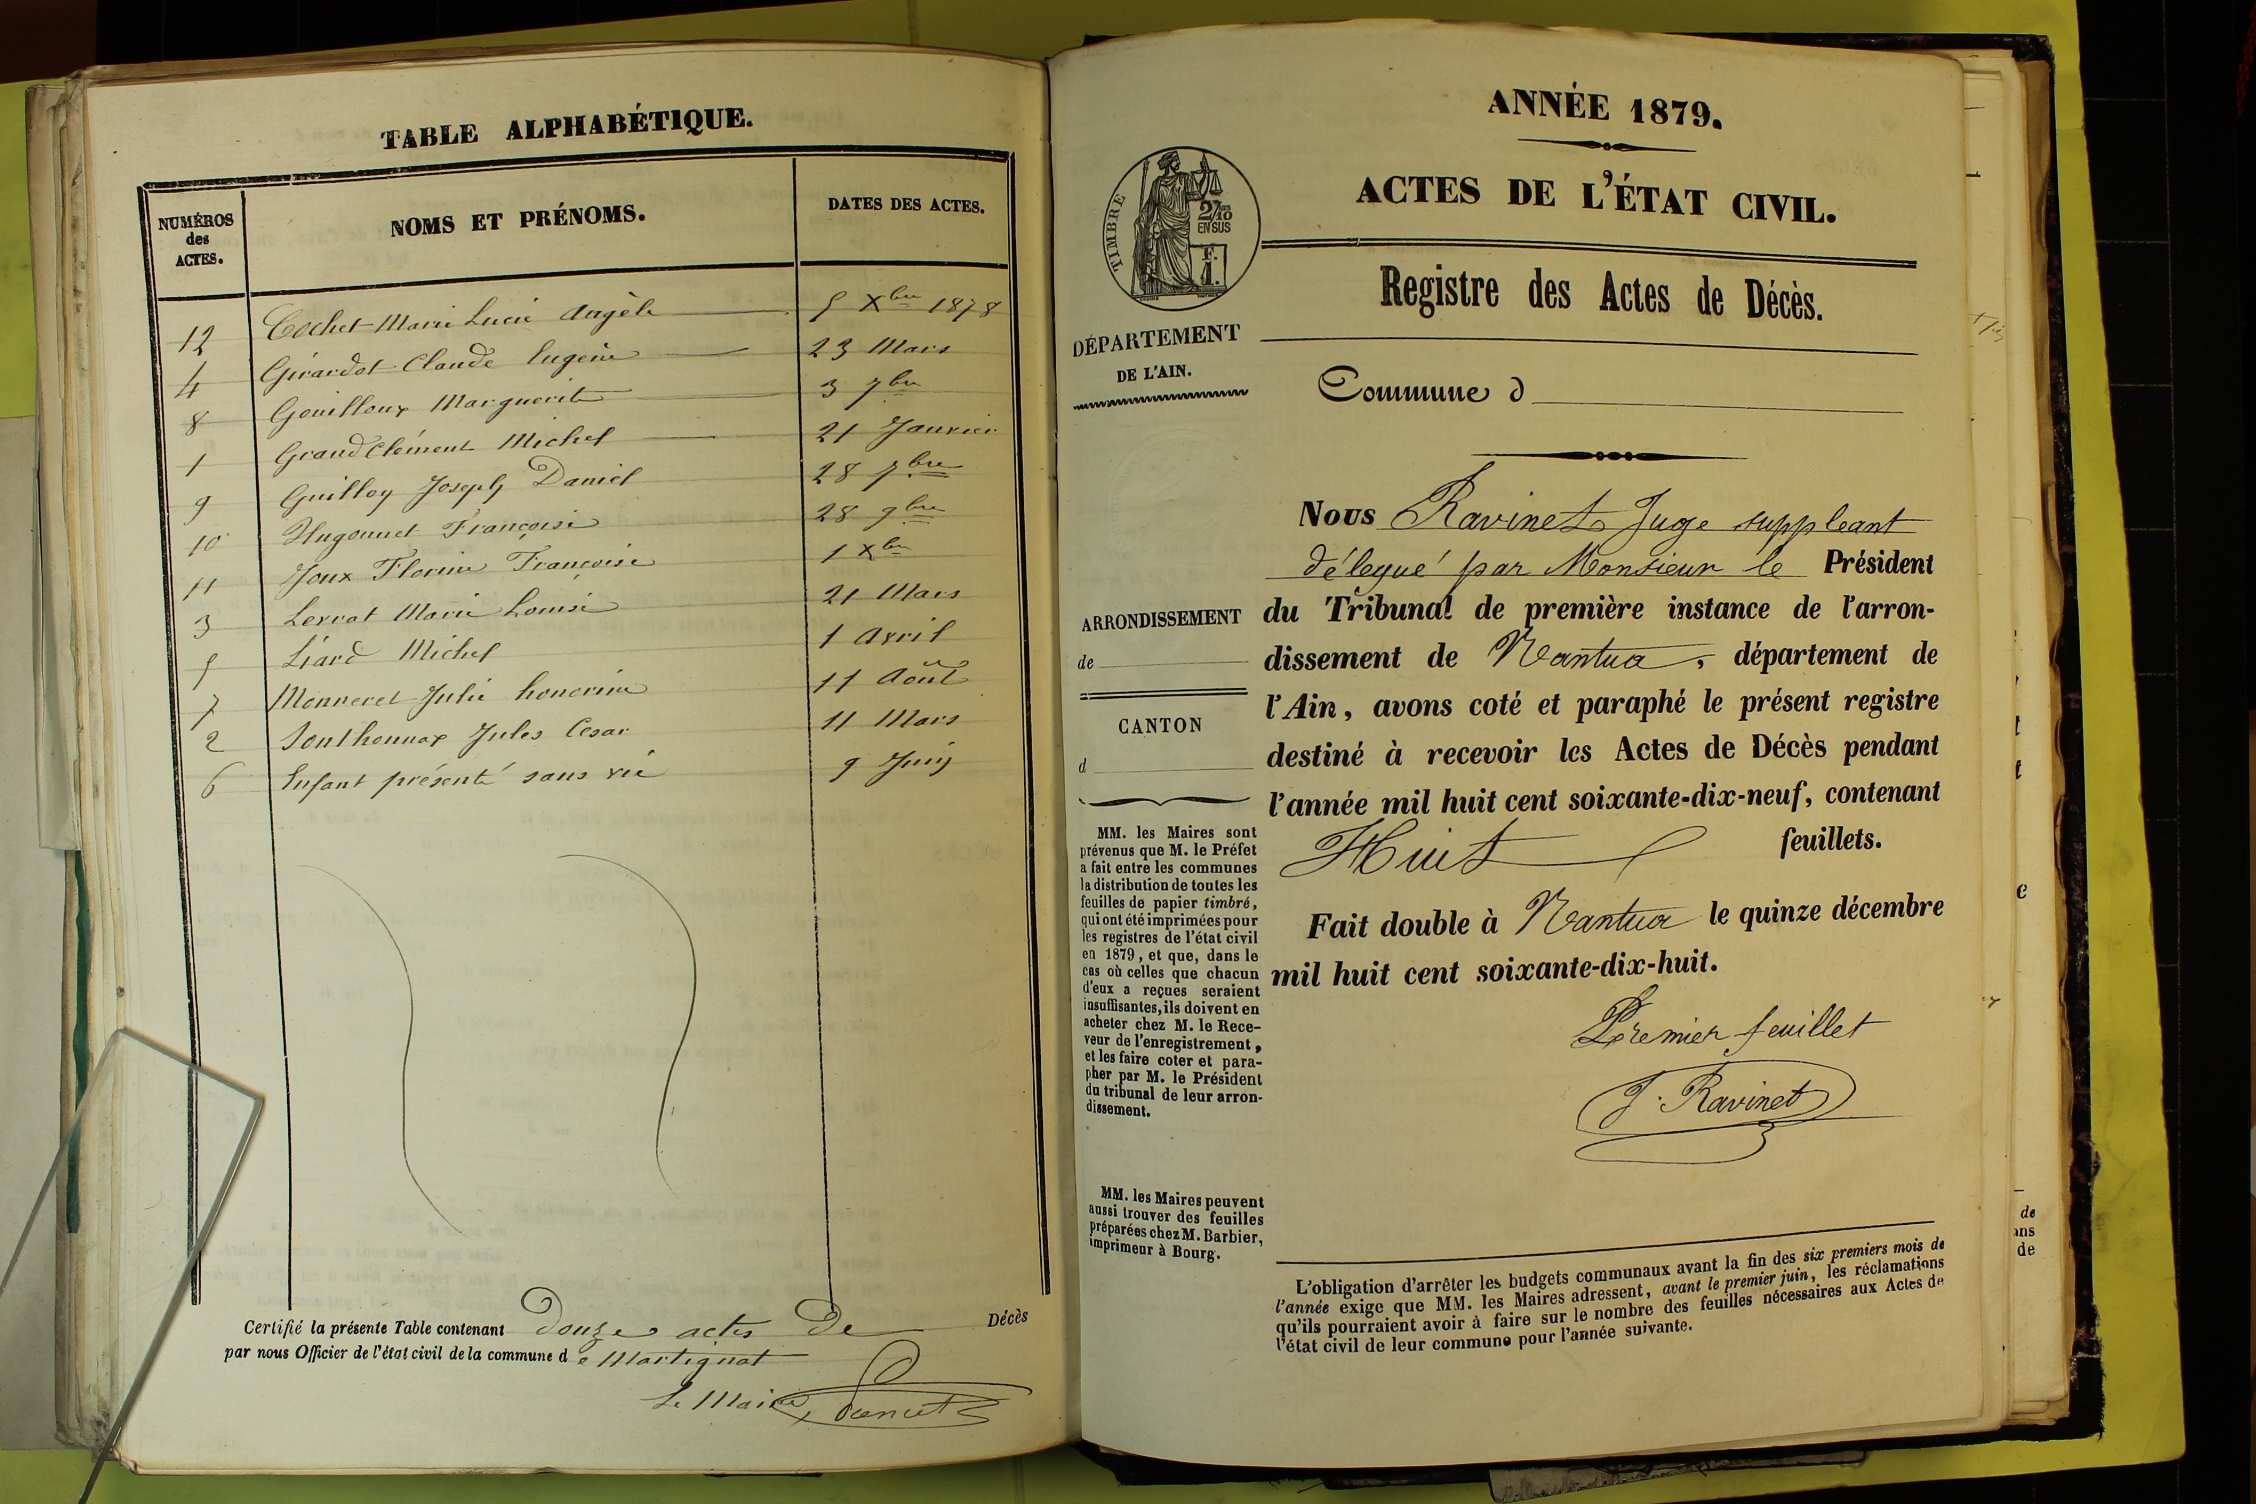 TABLE ALPHABÉTIQUE.
NUMÉROS
des
ACTES.
NOMS ET PRÉNOMS.
DATES DES ACTES.
12 Cochet Marie Lucie Angèle 5 Xbre 1878
4 Girardot Claude Eugène 23 Mars
8 Gouilloux Marguerite 3 7bre
1 Grandclément Michel 21 Janvier
9 Guilloy Joseph Daniel 28 7bre
10 Hugonnet Françoise 28 9bre
11 Joux Florine Françoise 1 Xbre
3 Levrat Marie Louise 21 Mars
5 Liard Michel 1 Avril
7 Monneret Julie honorine 11 Août
2 Sonthonnax Jules Cesar 11 Mars
6 Enfant présenté sans vie 9 Juin
Certifié la présente Table contenant douze actes de Décès
par nous Officier de l'état civil de la commune d e Martignat
Le Maire
ANNÉE 1879.
ACTES DE L'ÉTAT CIVIL.
TIMBRE
2/10
EN SUS
F.
1.
Registre des Actes de Décès.
DÉPARTEMENT
DE L'AIN.
Commune d
Nous Ravinet Juge suppleant
délegué par Monsieur le Président
ARRONDISSEMENT
de
du Tribunal de première instance de l'arron-
dissement de Nantua, département de
l'Ain, avons coté et paraphé le présent registre
CANTON
d
destiné à recevoir les Actes de Décès pendant
l'année mil huit cent soixante-dix-neuf, contenant
Huit feuillets.
MM. les Maires sont
prévenus que M. le Préfet
a fait entre les communes
la distribution de toutes les
feuilles de papier timbré,
qui ont été imprimées pour
les registres de l'état civil
en 1879, et que, dans le
cas où celles que chacun
d'eux a reçues seraient
insuffisantes, ils doivent en
acheter chez M. le Rece-
veur de l'enregistrement,
et les faire coter et para-
pher par M. le Président
du tribunal de leur arron-
dissement.
Fait double à Nantua le quinze décembre
mil huit cent soixante-dix-huit.
Premier feuillet
J. Ravinet
MM. les Maires peuvent
aussi trouver des feuilles
préparées chez M. Barbier,
imprimeur à Bourg.
L'obligation d'arrêter les budgets communaux avant la fin des six premiers mois de
l'année exige que MM. les Maires adressent, avant le premier juin, les réclamations
qu'ils pourraient avoir à faire sur le nombre des feuilles nécessaires aux Actes de
l'état civil de leur commune pour l'année suivante.